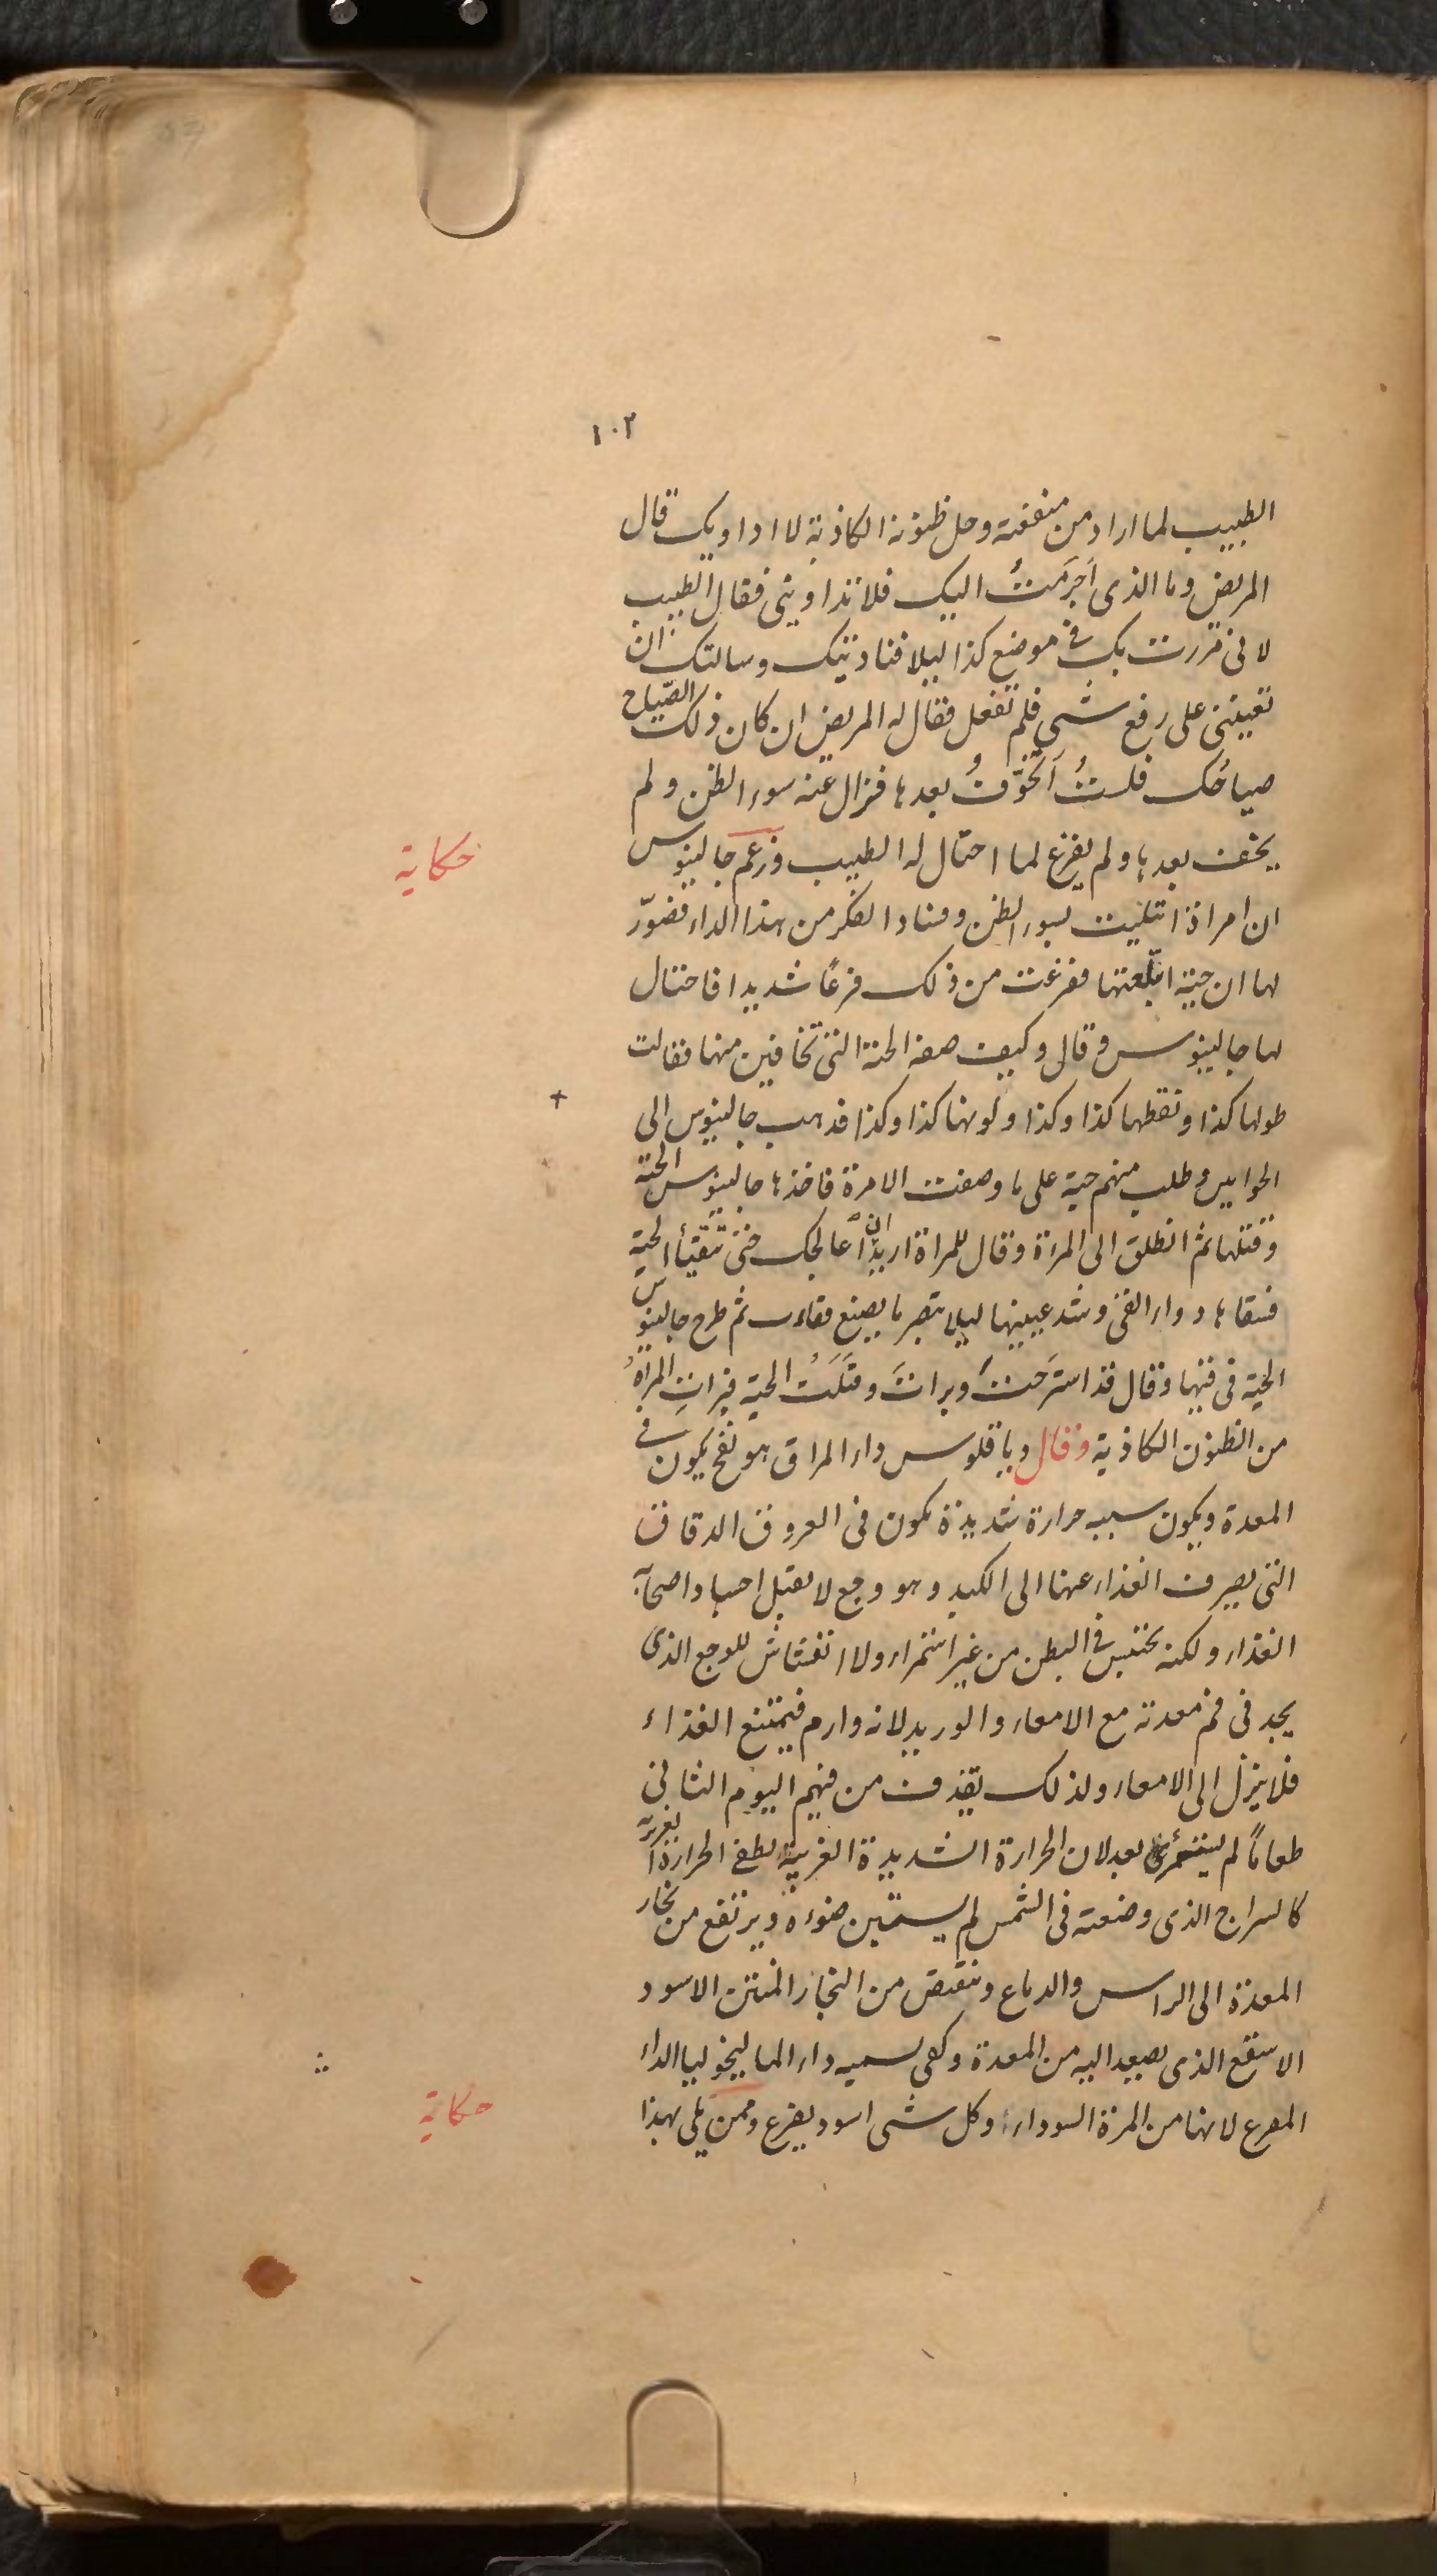 ١٠٢
الطبيب لما اراد من منفعته وحل ظنونه الكاذبة لا اداويك قال
المريض وما الذى اَجرَمتُ اليك فلا تداوينى فقال الطبيب
لانى مررت بك فى موضع كذا ليلا فناديتك وسالتك ان
تعيننى على رفع شى فلم تفعل فقال له المريض ان كان ذلك الصّياح
صياحُك فلستُ اَتخوّفُ بعدها فزال عنه سوء الظن ولم
يخف بعدها ولم يفزع لما احتال له الطبيب وزعم جالينوس
حكاية
ان امراة ابتليت بسوء الظن وفساد الفكر من هذا الداء فتصوّر
لها ان حية ابتلعتها ففزعت من ذلك فزعًا شديدا فاحتال
لها جالينوس وقال وكيف صفة الحية التى تخافين منها فقالت
طولها كذا ونقطها كذا وكذا ولونها كذا وكذا فذهب جالينوس الى
الحوايين وطلب منهم حية على ما وصفت الامرة فاخذها جالينوس الحية
وقتلها ثم انطلق الى المراة وقال للمراة اريد ان اعالجك حتى تتقيأ الحية
فسقاها دواء القى وشد عينيها ليلا تبصر ما يصنع فقاءت ثم طرح جالينوس
الحية فى قيها وقال قد استَرَحتَ وبرات وقتلت الحية فبرات المراة
من الظنون الكاذبة وقال دياقلوس داء المراق هو نفخ يكون فى
المعدة ويكون سببه حرارة شديدة تكون فى العروق الدقاق
التى يصرف الغذاء عنها الى الكبد وهو وجع لا يقبل احسا
الغذاء ولكنه يحتبس فى البطن من غير استمراء ولا انفتاش للوجع الذى
يجد فى فم معدته مع الامعاء والوريد لانه وارم فيمتنع الغذاء
فلا ينزل الى الامعاء ولذلك يقذف من فيهم اليوم الثانى
طعامًا لم يستمرئ بعد لان الحرارة الشديدة الغريبة تطفى الحرارة الغريزية
كالسراج الذى وضعته فى الشمس لم يستبين ضوءه ويرتفع من بخار
المعدة الى الراس والدماغ وتنقبض من البخار المنتن الاسود
الاسقع الذى يصعد اليه من المعدة وكفى بسميه داء الماليخوليا الداء
المفزع لانها من المرة السوداء وكل شى اسود يفزع وممن بلى بهذا
حكاية